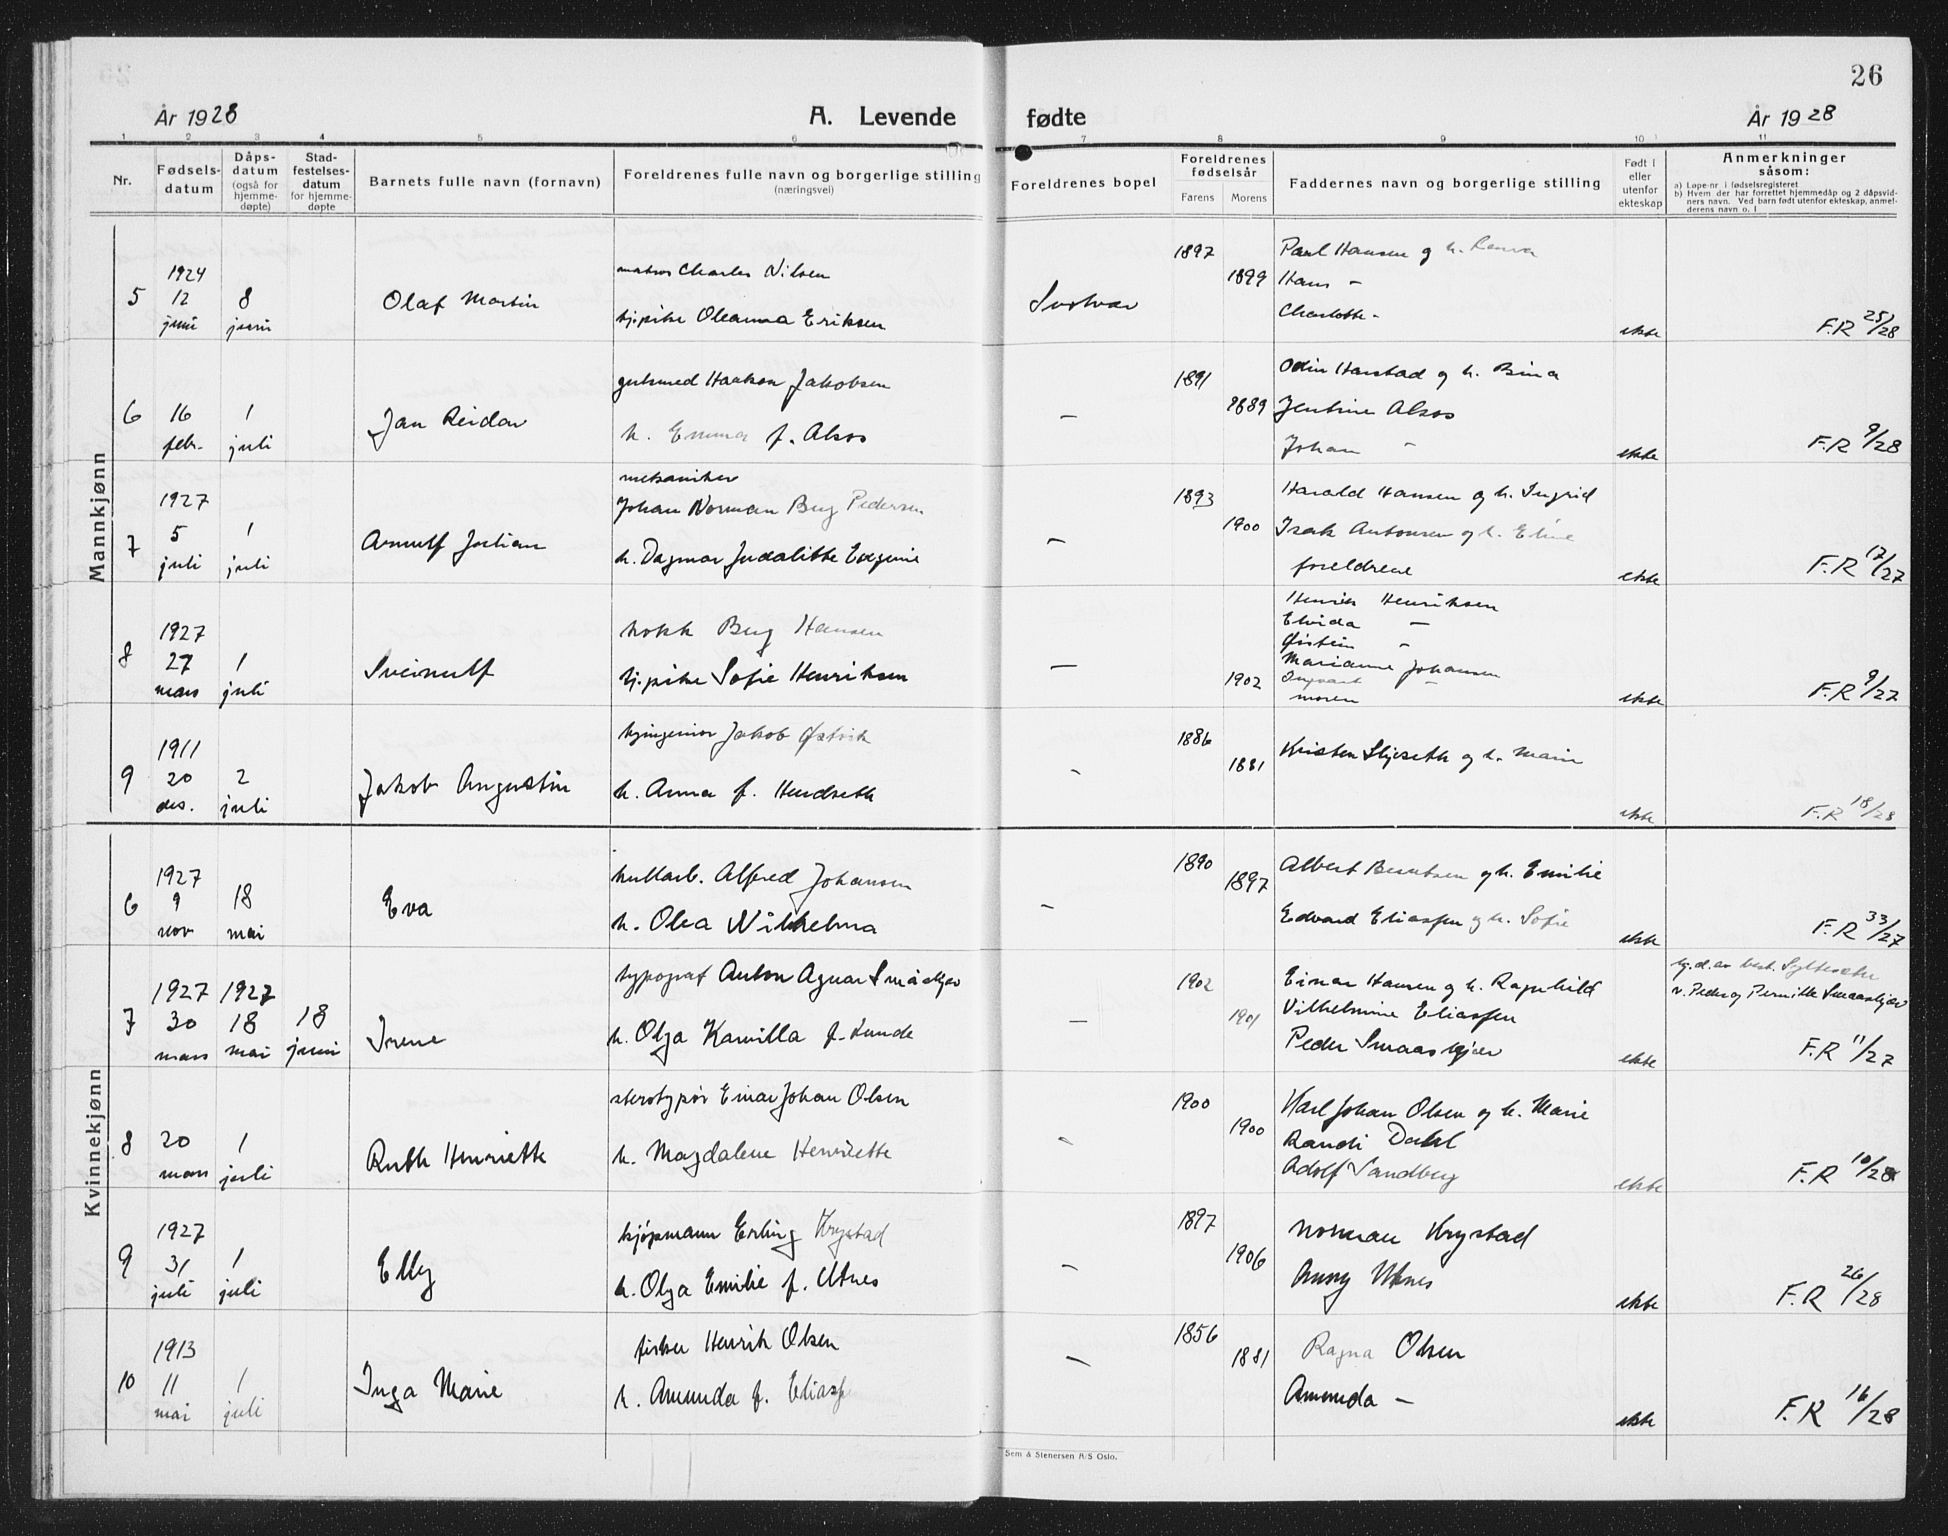 26
År 1928 A. Levende fødte År 1928
1 2 3 4 5 6 7 8 9 10 11
Nr. Fødsels-datum Dåps-datum (også for hjemme-døpte) Stad-festelses-datum for hjemme-døpte Barnets fulle navn (fornavn) Foreldrenes fulle navn og borgerlige stilling (næringsvei) Foreldrenes bopel Foreldrenes fødselsår Farens Morens Faddernes navn og borgerlige stilling Født i eller utenfor ekteskap Anmerkninger såsom:
a) Løpe-nr i fødselsregisteret
b) Hvem der har forrettet hjemmedåp og 2 dåpsvid-
ners navn. Ved barn født utenfor ekteskap, anmel-
derens navn o. l
Mannkjønn
1924 matros Charles Nilsen 1897 Paul Hansen og h.
5 12 juni 8 juni Olaf Martin Svolvær 1899 Hans -
hj.pike Oleanna Eriksen Charlotte - ekte F.R 25/28
gulsmed Haakon Jakobsen 1891 Odin Harstad og h. Bina
6 16 febr. 1 juli Jan Reidar - 1889 Jentine Alsos
h. Emma f. Alsos Johan - ekte F.R 9/28
1927 mekaniker 1893 Harald Hansen og h. Ingrid
Johan Norman Berg Pedersen
7 5 juli 1 juli Arnulf Jostian - 1900 Isak Antonsen og h. Eline
h. Dagmar Judalitte Eugenie foreldrene ekte F.R 17/27
1927 kokk Berg Hansen Henrik Henriksen
Elvida -
Øistein -
8 27 mars 1 juli Sveinulf hj.pike Sofie Henriksen - 1902 Marianne Johansen
Ingvart -
moren ekte F.R 9/27
1911 Jakob Østvik 1886
9 20 des. 2 juli Jakob Augustin - 1881 Kristen Skjeseth og h. Marie
h. Anna f. Hendseth ekte F.R 18/28
Kvinnekjønn
1927 kullarb. Alfred Johansen 1890 Albert Berntsen og h. Emilie
6 9 nov 18 mai Eva - 1897
h. Olea Vilhelma Edvard Eliassen og h. Sofie ekte F.R 33/27
1927 1927 typograf Anton Agnar Småskjær 1902 Einar Hansen og h. Ragnhild
v. Peder og Pernille Smaaskjær
7 30 mars 18 mai 18 juni Irene - 1901 Vilhelmine Eliassen
h. Olga Kamilla f. Lunde Peder Smaaskjær ekte F.R 11/27
sterotypør Einar Johan Olsen 1900 Karl Johan Olsen og h. Marie
8 20 mars 1 juli Ruth Henriette - 1900 Randi Dahl
h. Magdalene Henriette Adolf Sandberg ekte F.R 10/28
1927 kjøpmann Erling Krystad 1897 Norman Krystad
9 31 juli 1 juli Elly - 1906
h. Olga Emilie f. Utnes Anny Utnes ekte F.R 26/28
1913 fisker Henrik Olsen 1856 Ragna Olsen
10 11 mai 1 juli Inga Marie - 1881
h. Amunda f. Eliassen Amunda - ekte F.R 16/28
Sem & Stenersen A/S Oslo.